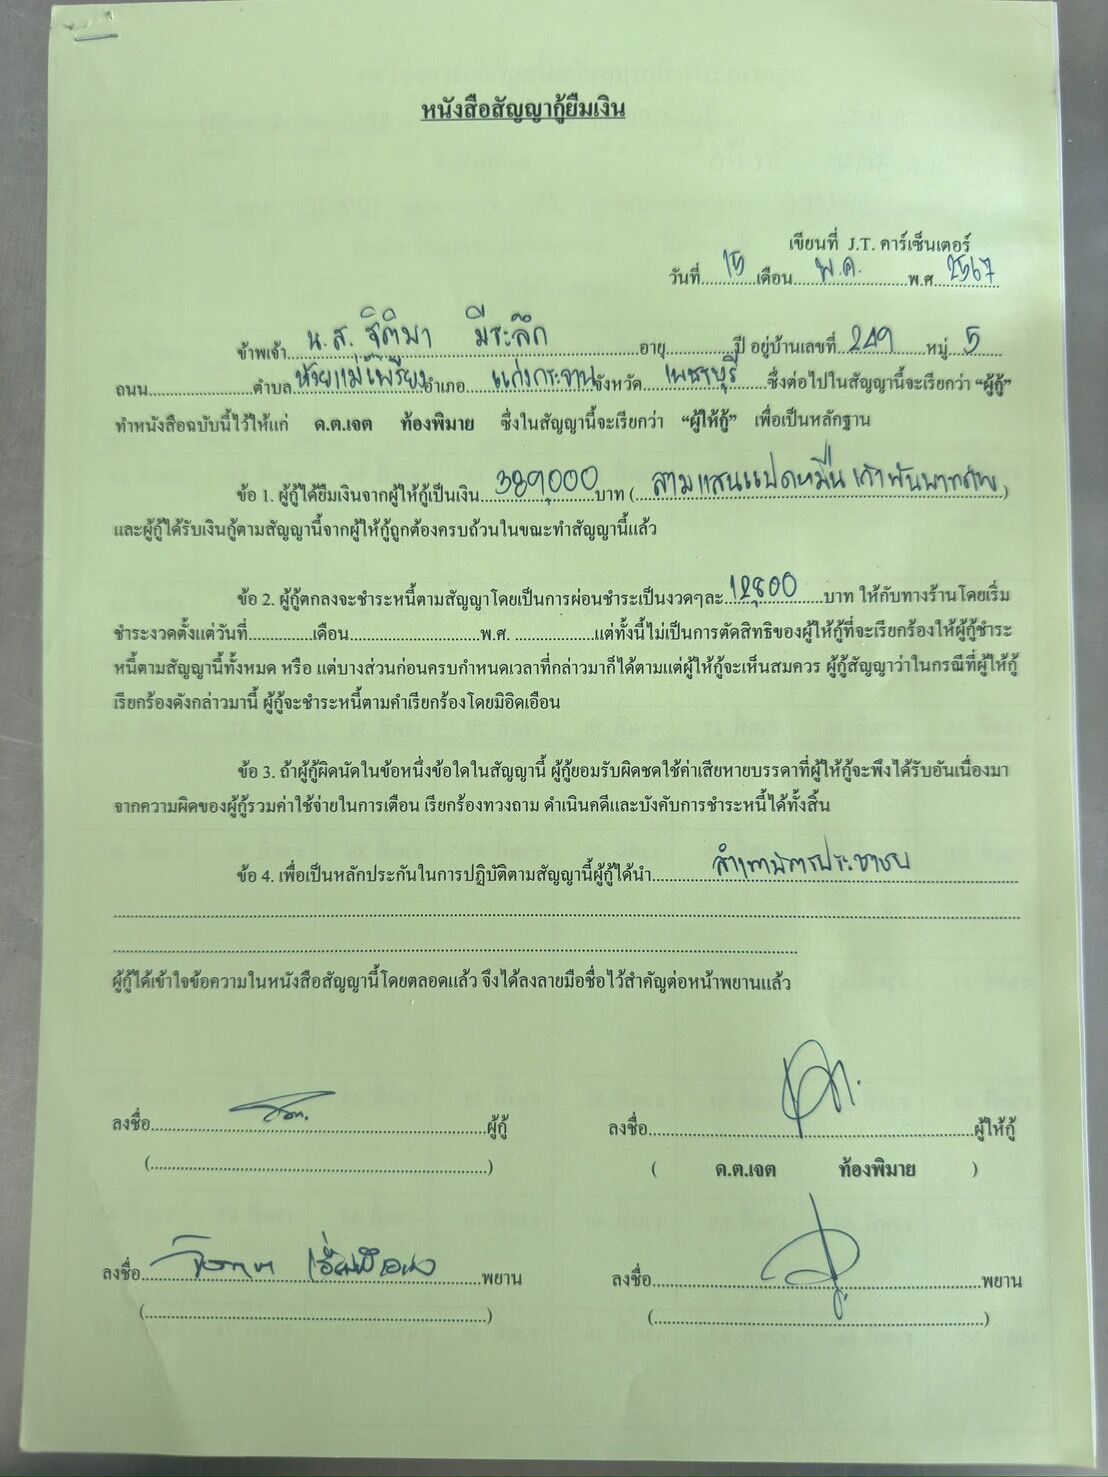 หนังสือสัญญากู้ยืมเงิน
เขียนที่ J.T. คาร์เซ็นเตอร์
วันที่ 15 เดือน พ.ค. พ.ศ. 2567
ข้าพเจ้า น.ส. ฐิติมา มีระลึก อายุ ปี อยู่บ้านเลขที่ 249 หมู่ 5
ถนน ตำบล ห้วยแม่เพรียง อำเภอ แก่งกระจาน จังหวัด เพชรบุรี ซึ่งต่อไปในสัญญานี้จะเรียกว่า “ผู้กู้”
ทำหนังสือฉบับนี้ไว้ให้แก่ ด.ต.เจต ท้องพิมาย ซึ่งในสัญญานี้จะเรียกว่า “ผู้ให้กู้” เพื่อเป็นหลักฐาน
ข้อ 1. ผู้กู้ได้ยืมเงินจากผู้ให้กู้เป็นเงิน 389,000 บาท (สามแสนแปดหมื่นเก้าพันบาทถ้วน)
และผู้กู้ได้รับเงินกู้ตามสัญญานี้จากผู้ให้กู้ถูกต้องครบถ้วนในขณะทำสัญญานี้แล้ว
ข้อ 2. ผู้กู้ตกลงจะชำระหนี้ตามสัญญาโดยเป็นการผ่อนชำระเป็นงวดๆละ 12,800 บาท ให้กับทางร้านโดยเริ่ม
ชำระงวดตั้งแต่วันที่ เดือน พ.ศ. แต่ทั้งนี้ไม่เป็นการตัดสิทธิของผู้ให้กู้ที่จะเรียกร้องให้ผู้กู้ชำระ
หนี้ตามสัญญานี้ทั้งหมด หรือ แต่บางส่วนก่อนครบกำหนดเวลาที่กล่าวมาก็ได้ตามแต่ผู้ให้กู้จะเห็นสมควร ผู้กู้สัญญาว่าในกรณีที่ผู้ให้กู้
เรียกร้องดังกล่าวมานี้ ผู้กู้จะชำระหนี้ตามคำเรียกร้องโดยมิอิดเอือน
ข้อ 3. ถ้าผู้กู้ผิดนัดในข้อหนึ่งข้อใดในสัญญานี้ ผู้กู้ยอมรับผิดชดใช้ค่าเสียหายบรรดาที่ผู้ให้กู้จะพึงได้รับอันเนื่องมา
จากความผิดของผู้กู้รวมค่าใช้จ่ายในการเตือน เรียกร้องทวงถาม ดำเนินคดีและบังคับการชำระหนี้ได้ทั้งสิ้น
ข้อ 4. เพื่อเป็นหลักประกันในการปฏิบัติตามสัญญานี้ผู้กู้ได้นำ สำเนาบัตรประชาชน
ผู้กู้ได้เข้าใจข้อความในหนังสือสัญญานี้โดยตลอดแล้ว จึงได้ลงลายมือชื่อไว้สำคัญต่อหน้าพยานแล้ว
ลงชื่อ ผู้กู้ ลงชื่อ ผู้ให้กู้
( ) ( ด.ต.เจต ท้องพิมาย )
ลงชื่อ พยาน ลงชื่อ พยาน
( ) ( )